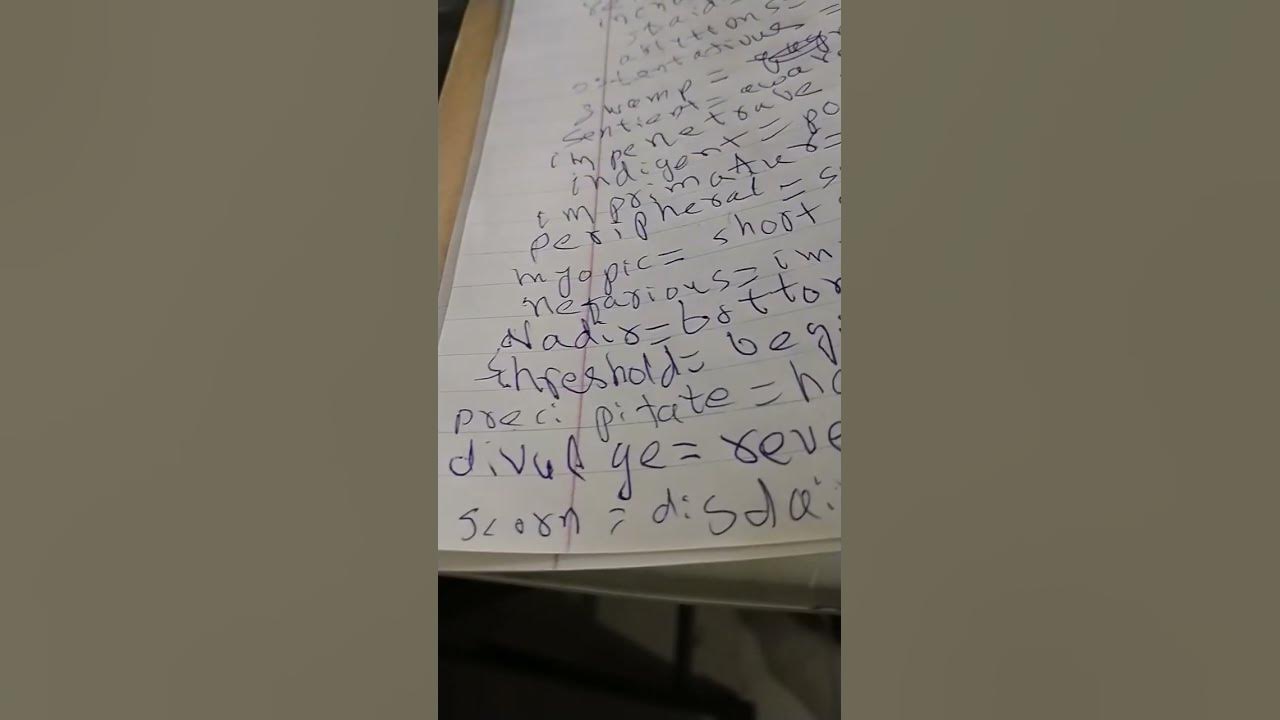 staid =
ostentatious =
swamp =
sentient = awar
impenetrave
indigent = po
imprimatur =
peripheral = s
myopic = short
nefarious = im
Nadir = bottom
threshold = beg
precipitate = ha
divulge = reve
scorn = disdai